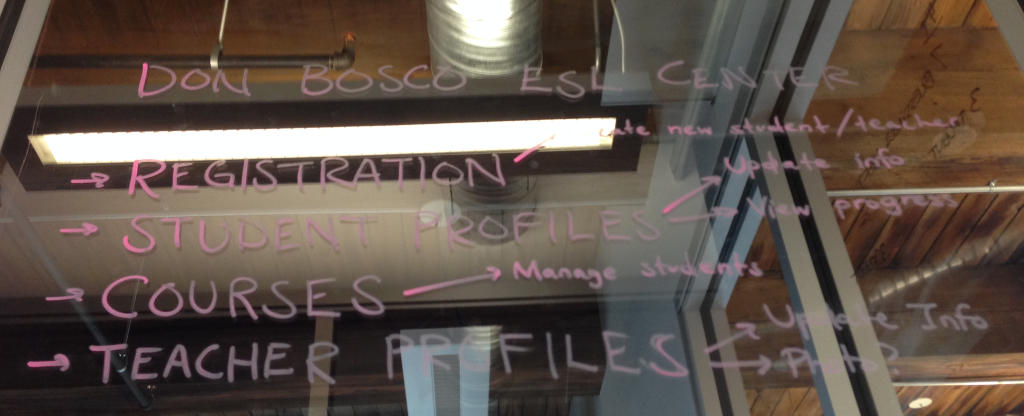 DON BOSCO ESL CENTER
→ REGISTRATION
new student/teacher
→ STUDENT PROFILES
Update info
View progress
→ COURSES → Manage students
→ TEACHER PROFILES
Update Info